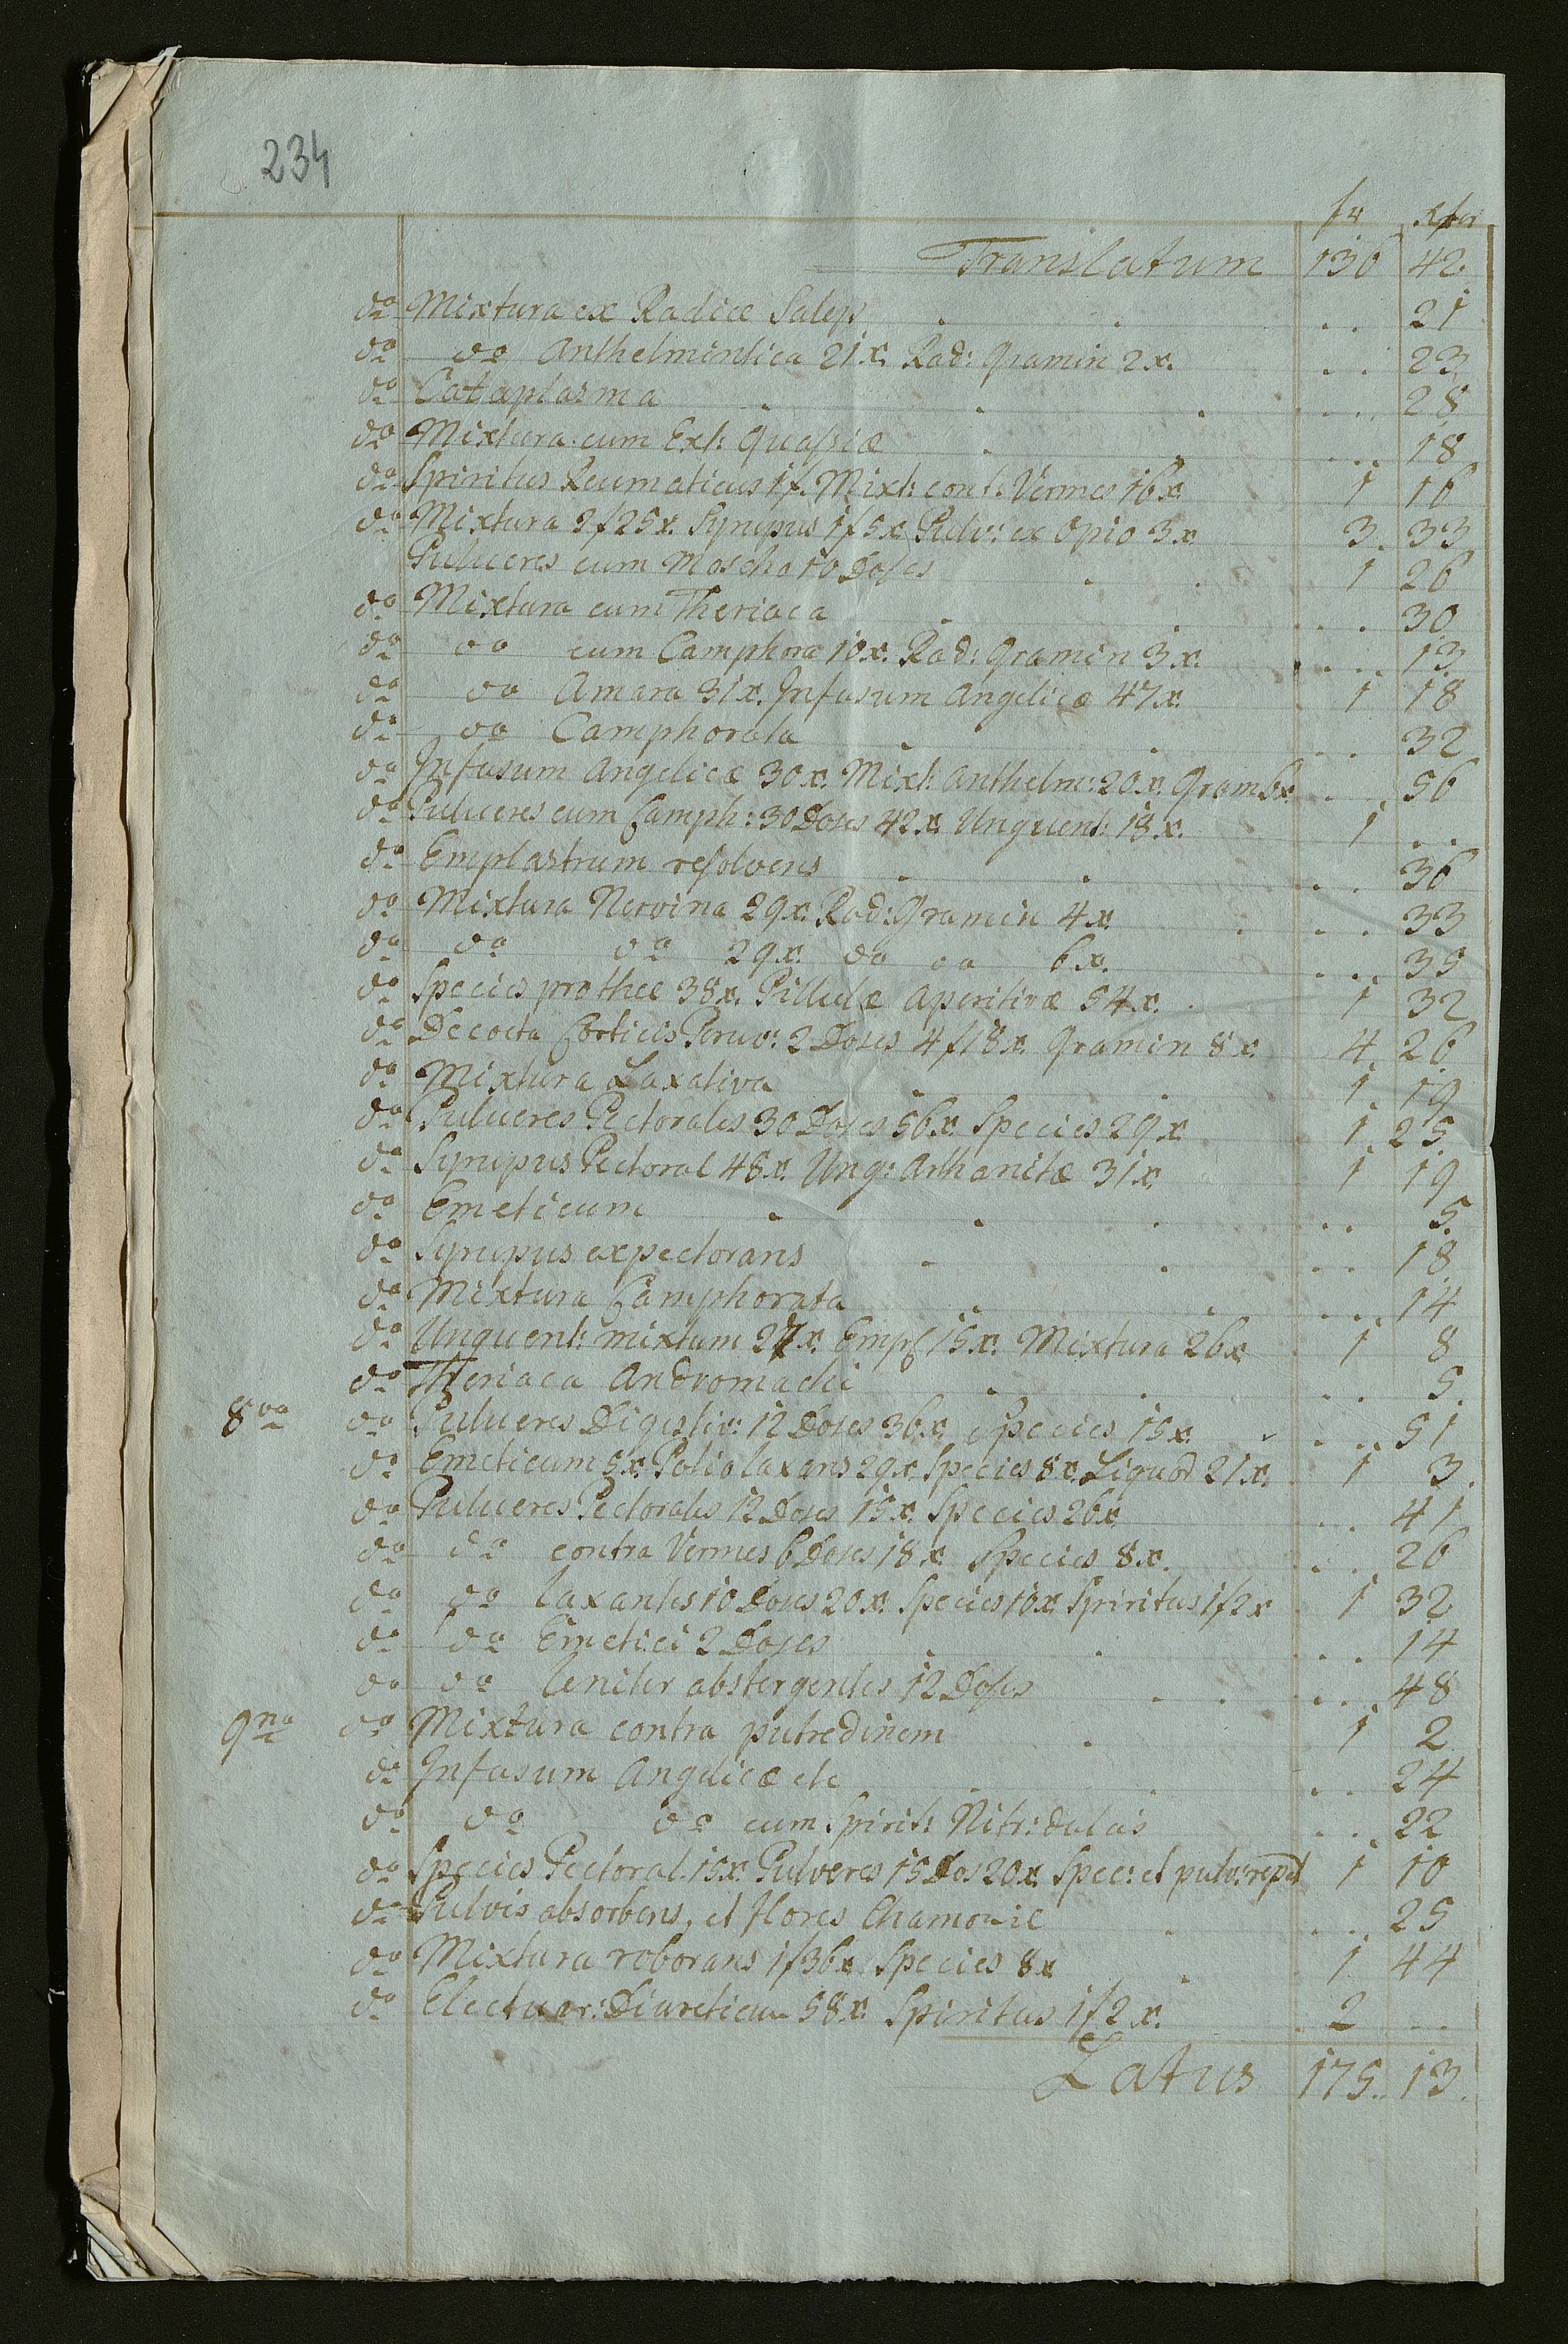 234
fr xfer
Translatum 136 42
do Mixtura ex Radice Salep . . . . 21
do do Anthelmintica 21x. Rad: Gramin 2x. . . 23
do Cataplasma . . . . . . 28
do Mixtura cum Ext: Quassiæ . . . . . 18
do Spiritus Reumaticus 1f. Mixt: cont: Vermes 16x. 1 16
do Mixtura 2f25x. Syrupus 1f5x Pulv: ex Opio 3x. 3. 33
Pulveres cum Moscho 10 Doses . . 1 26
do Mixtura cum Theriaca . . . . . 30
do do cum Camphora 10x. Rad: Gramin 3x. . . . 13
do do Amara 31x. Infusum Angelicæ 47x. 1 18
do do Camphorata . . . . 32
do Infusum Angelicæ 30x. Mixt: Anthelm: 20x. Gram 6x. . . . 56
do Pulveres cum Camph: 30 Doses 42x. Unguent: 18x. 1 . .
do Emplastrum resolvens . . . . 36
do Mixtura Nervina 29x. Rad: Gramin 4x. . . . 33
do do do 29x. do do 6x. . . . 35
do Species pro thee 38x. Pillulæ Aperitivæ 54x. . 1 32
do Decocta Corticis Peruv: 2 Doses 4f18x. Gramin 8x. 4. 26
do Mixtura Laxativa . . 1. 19
do Pulveres Pectorales 30 Doses 56x. Species 29x 1. 25
do Syrupus Pectoral 48x. Ung: Arthanitæ 31x. 1 19
do Emeticum . . . . . 5.
do Syrupus expectorans . . . . 18
do Mixtura Camphorata . . . . . 14
do Unguent: mixtum 27x. Empl 15x. Mixtura 26x 1 8
do Theriaca Andromachi . . . . 5.
8va do Pulveres Digestiv: 12 Doses 36x. Species 15x. . . . 51
do Emeticum 5x. Potio laxans 29x. Species 8x. Liquor 21x. 1 3.
do Pulveres Pectorales 12 Doses 15x. Species 26x. . . . 41
do do contra Vermes 6 Doses 18x. Species 8x. . . . 26
do do laxantes 10 Doses 20x. Species 10x. Spriritus 1f2x 1 32
do do Emetici 2 Doses . . . . . 14
do do leniter abstergentes 12 Doses . . . . . 48
9na do Mixtura contra putredinem . 1 2
do Infusum Angelicæ etc . . . . 24
do do do cum Spirit: Nitr: dulcis . . . 22
do Species Pectoral. 15x. Pulveres 15 Dos 20x. Spec: et pulv: repet 1 10
do Pulvis absorbens, et flores Chamomil . . . . 25
do Mixtura roborans 1f36x Species 8x . 1 44
do Electuar: Diureticum 58x. Spiritus 1f2x. 2 . .
Latus 175. 13.